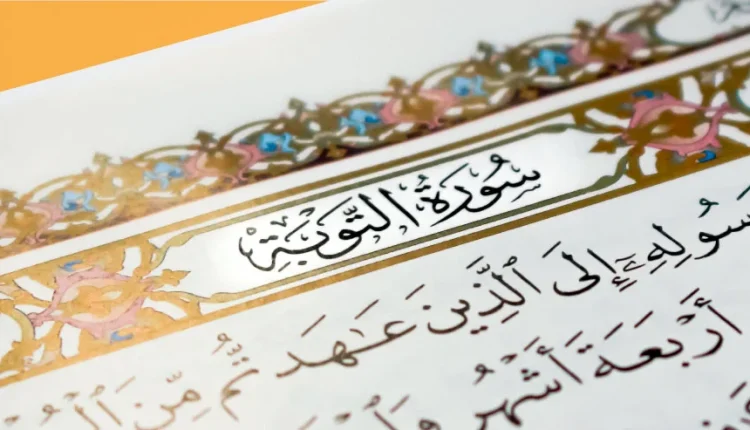 سُورَةُ التَّوْبَةِ
سُولِهِۦٓ إِلَى ٱلَّذِينَ عَٰهَدتُّم مِّنَ
أَرْبَعَةَ أَشْهُرٍ